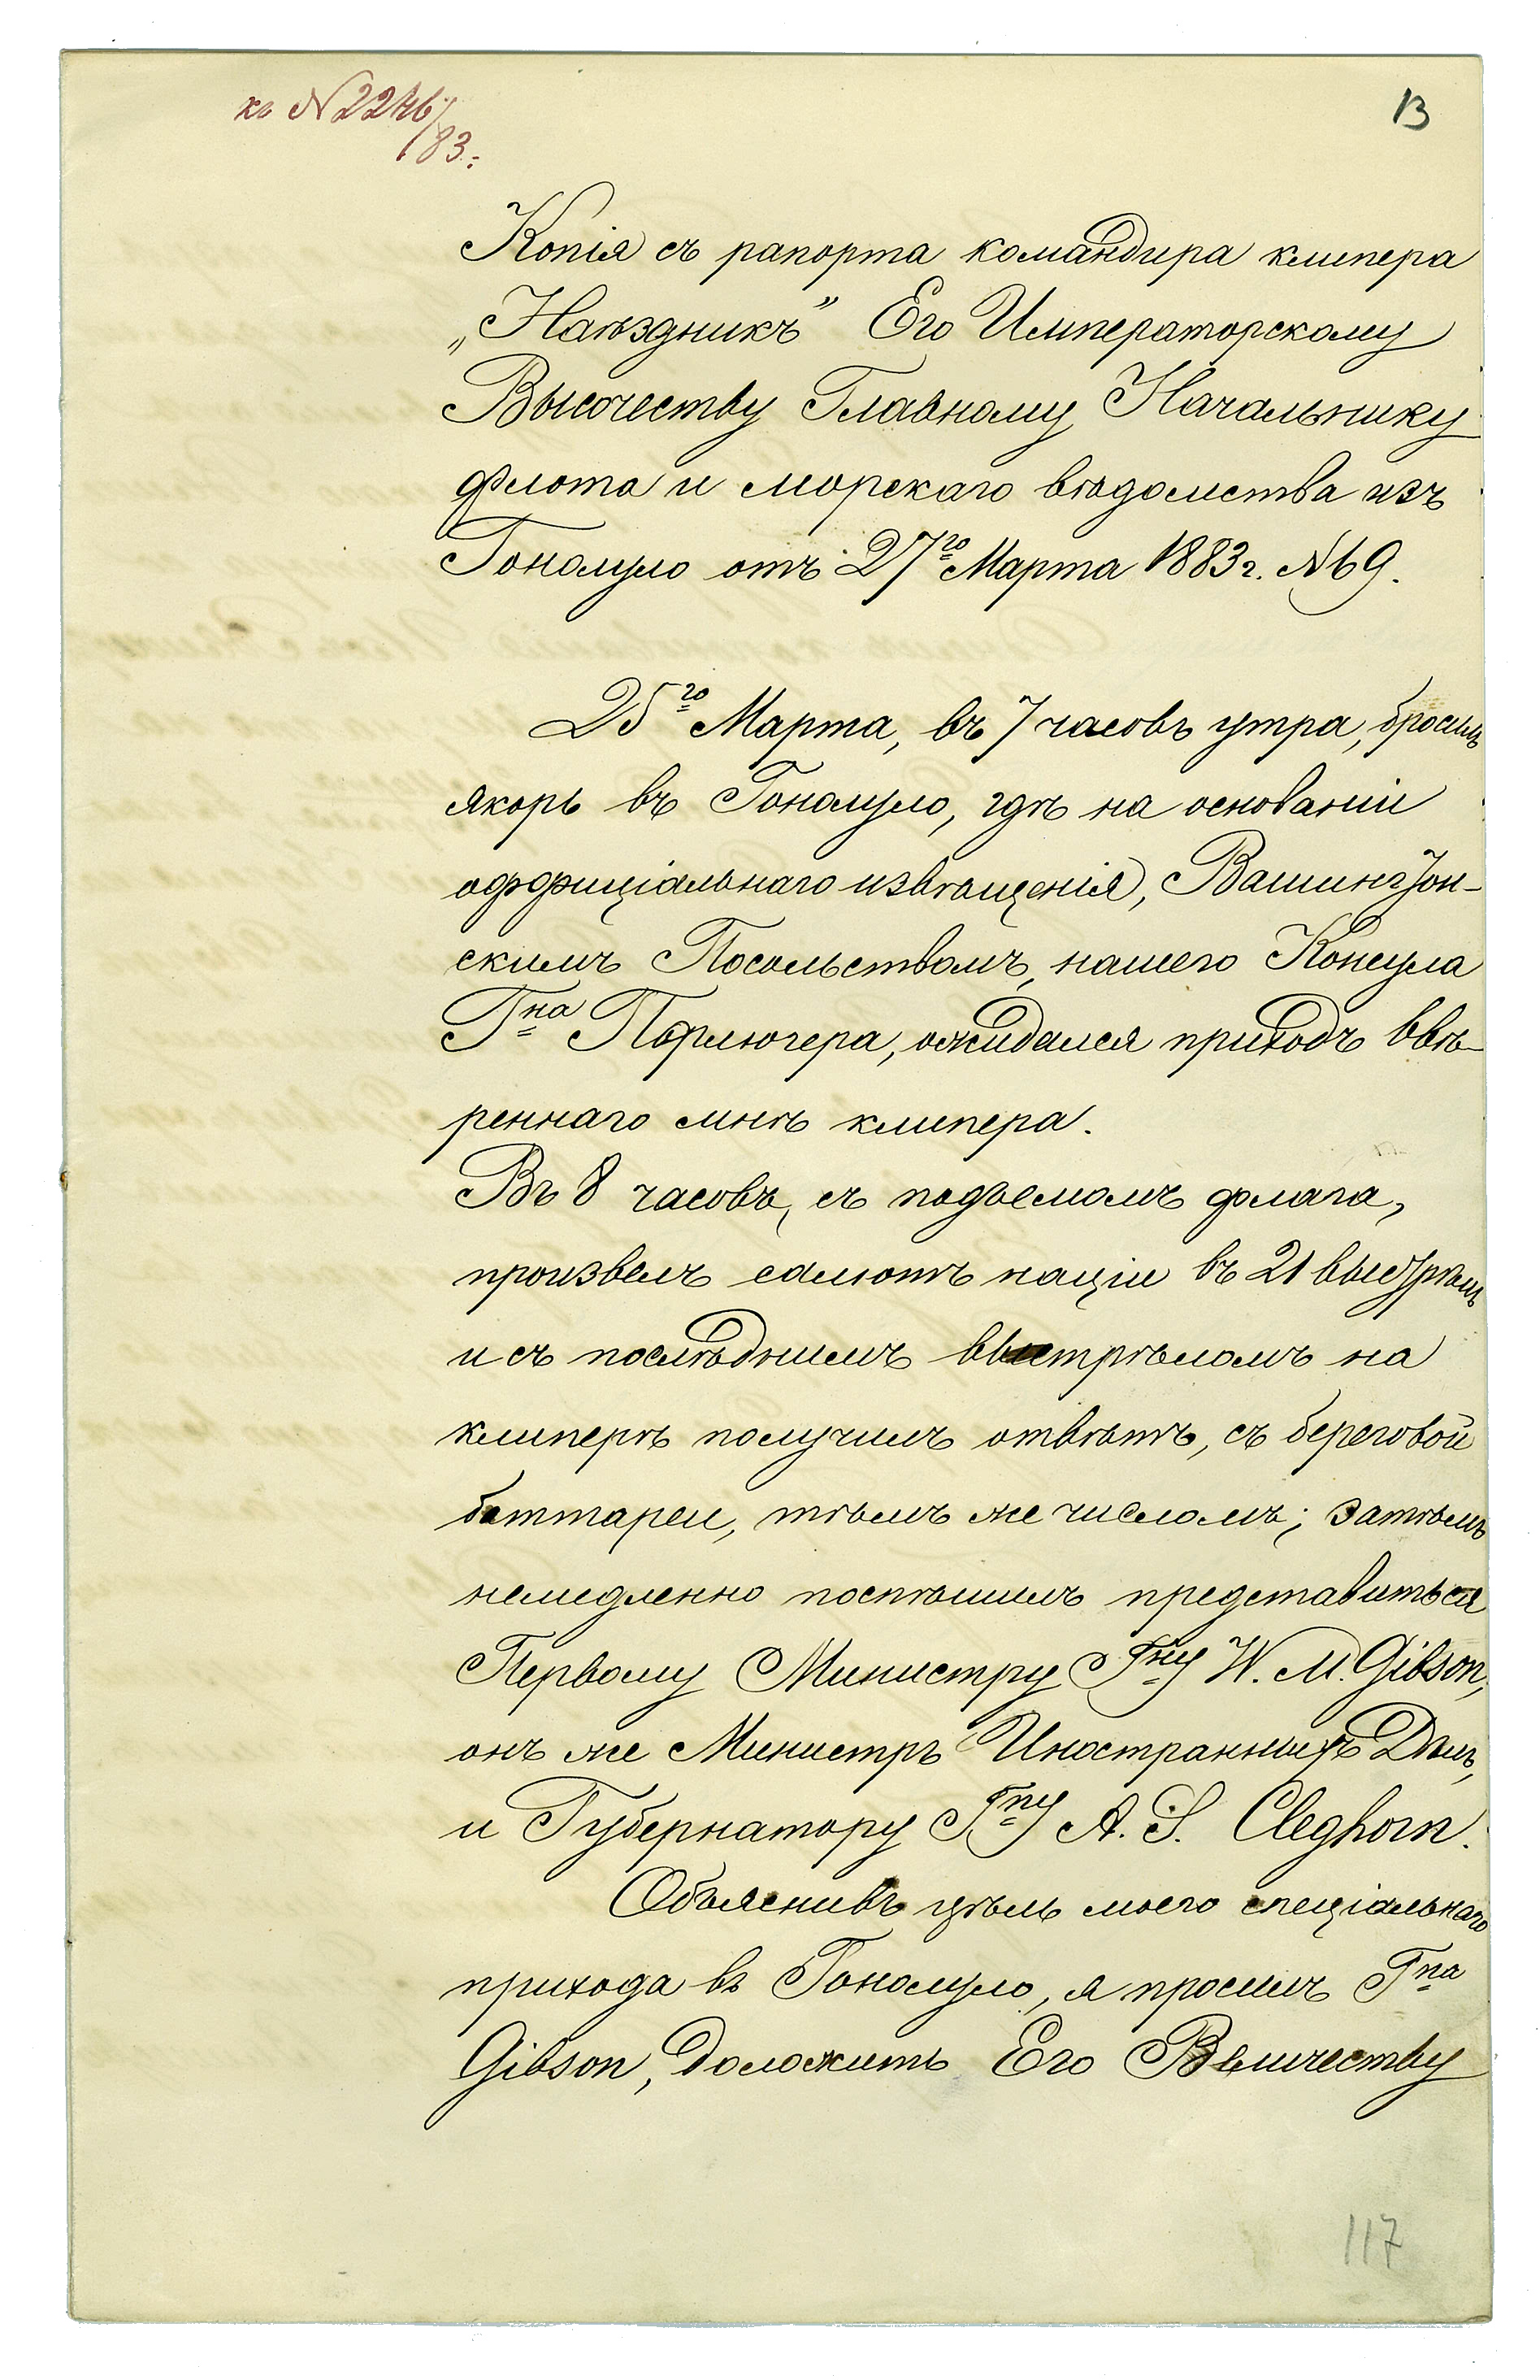 къ № 2246/
83.
13
Копія съ рапорта командира клипера
„Наѣздникъ” Его Императорскому
Высочеству Главному Начальнику
флота и морскаго вѣдомства изъ
Гонолуло отъ 27го Марта 1883 г. № 69.
25го Марта, въ 7 часовъ утра, бросилъ
якорь въ Гонолуло, гдѣ на основаніи
оффиціальнаго извѣщенія, Вашингтон-
скимъ Посольствомъ, нашего Консула
Гна Пфлюгера, ожидался приходъ ввѣ-
реннаго мнѣ клипера.
Въ 8 часовъ, съ подъемомъ флага,
произвелъ салютъ націи въ 21 выстрѣлъ
и съ послѣднимъ выстрѣломъ на
клиперѣ получилъ отвѣтъ, съ береговой
баттареи, тѣмъ же числомъ; затѣмъ
немедленно поспѣшилъ представиться
Первому Министру Гну W. M. Gibson,
онъ же Министръ Иностранныхъ Дѣлъ,
и Губернатору Гну A. S. Cleghorn.
Объяснивъ цѣль моего спеціальнаго
прихода въ Гонолуло, я просилъ Гна
Gibson, доложить Его Величеству
117